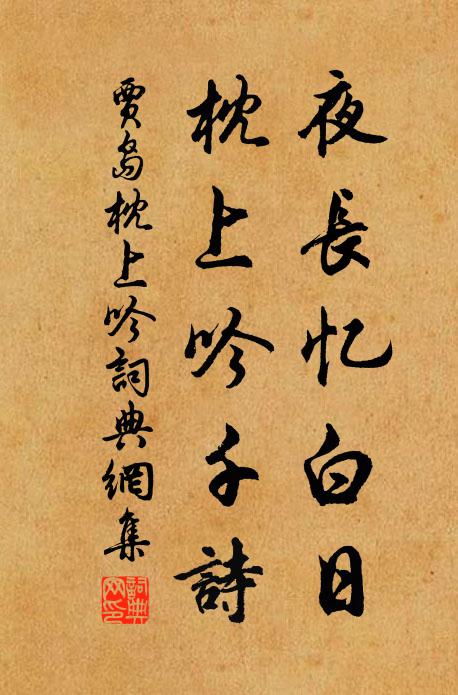 夜長忆白日
枕上吟千詩
賈島枕上吟詞典網集
詞典
网印